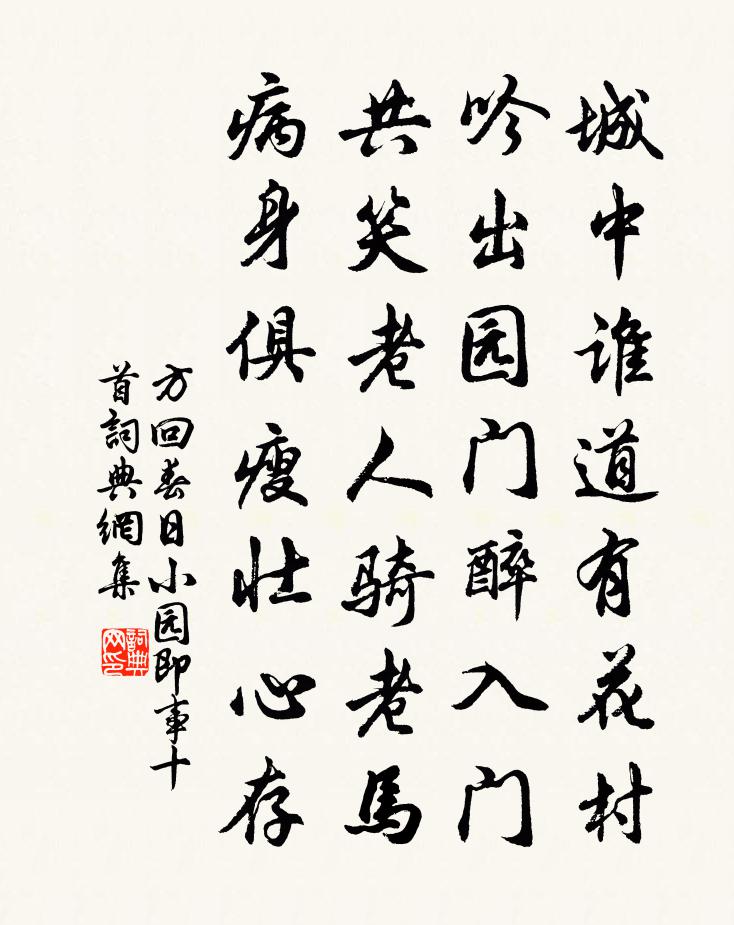 城中谁道有花村
吟出园门醉入门
共笑老人骑老馬
病身俱瘦壮心存
方回春日小园即事十
首詞典網集
詞典网印